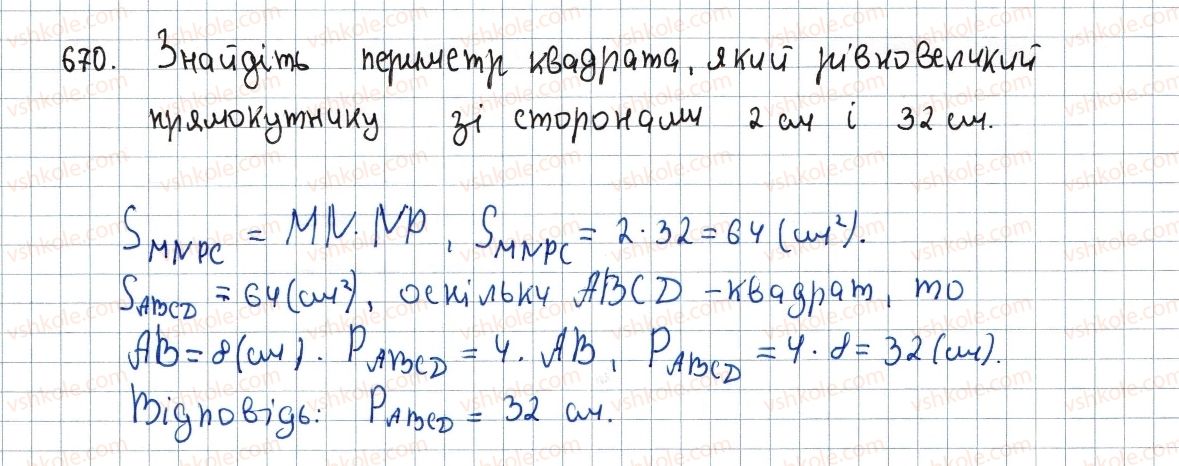 670. Знайдіть периметр квадрата, який рівновеликий
прямокутнику зі сторонами 2 см і 32 см.
S_MNPC = MN · NP, S_MNPC = 2 · 32 = 64 (см²).
S_ABCD = 64 (см²), оскільки ABCD – квадрат, то
AB = 8 (см). P_ABCD = 4 · AB, P_ABCD = 4 · 8 = 32 (см).
Відповідь: P_ABCD = 32 см.